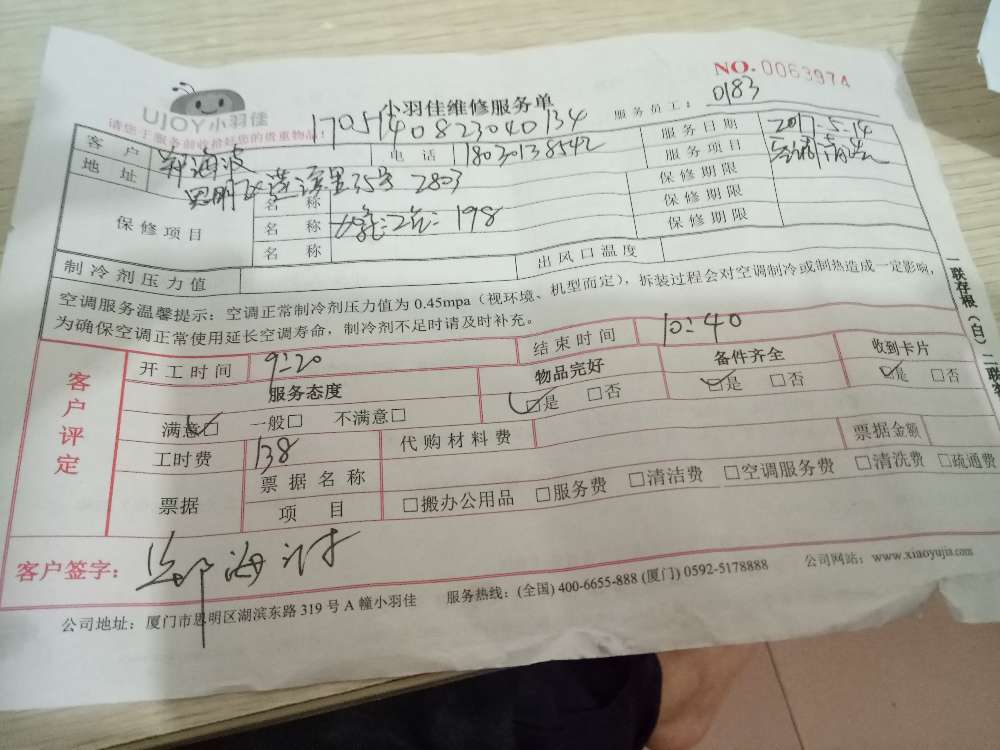 NO. 0063974
UJOY小羽佳
小羽佳维修服务单
请您于服务前收拾好您的贵重物品!
1705140823040134
服务员工: 0183
客户 电话 18030138542 服务日期 2017.5.14
地址 思明区莲 35号 2803 服务项目
名称 保修期限
保修项目 名称 198 保修期限
名称 保修期限
制冷剂压力值 出风口温度
空调服务温馨提示:空调正常制冷剂压力值为 0.45mpa(视环境、机型而定),拆装过程会对空调制冷或制热造成一定影响,
为确保空调正常使用延长空调寿命,制冷剂不足时请及时补充。
一联存根(白)二联
客户评定
开工时间 9:20 结束时间 10:40
服务态度 物品完好 备件齐全 收到卡片
满意☑ 一般□ 不满意□ ☑是 □否 ☑是 □否 ☑是 □否
工时费 138 代购材料费 票据金额
票据 票据名称
项目 □搬办公用品 □服务费 □清洁费 □空调服务费 □清洗费 □疏通费
客户签字: 郑海
公司地址:厦门市思明区湖滨东路 319 号 A 幢小羽佳 服务热线:(全国) 400-6655-888 (厦门) 0592-5178888 公司网站:www.xiaoyujia.com